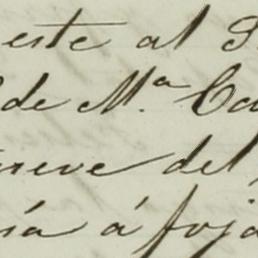 este al S
de M.ª Ca
nueve del
ía á foja